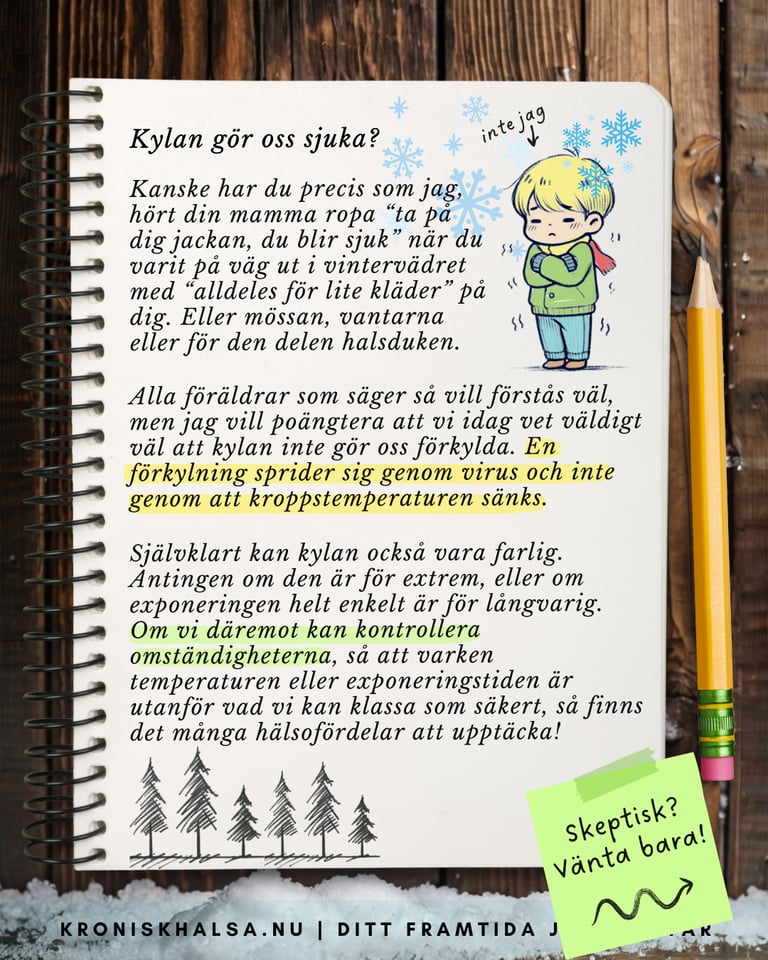 Kylan gör oss sjuka?
inte jag
Kanske har du precis som jag,
hört din mamma ropa “ta på
dig jackan, du blir sjuk” när du
varit på väg ut i vintervädret
med “alldeles för lite kläder” på
dig. Eller mössan, vantarna
eller för den delen halsduken.
Alla föräldrar som säger så vill förstås väl,
men jag vill poängtera att vi idag vet väldigt
väl att kylan inte gör oss förkylda. En
förkylning sprider sig genom virus och inte
genom att kroppstemperaturen sänks.
Självklart kan kylan också vara farlig.
Antingen om den är för extrem, eller om
exponeringen helt enkelt är för långvarig.
Om vi däremot kan kontrollera
omständigheterna, så att varken
temperaturen eller exponeringstiden är
utanför vad vi kan klassa som säkert, så finns
det många hälsofördelar att upptäcka!
Skeptisk?
Vänta bara!
KRONISKHALSA.NU | DITT FRAMTIDA